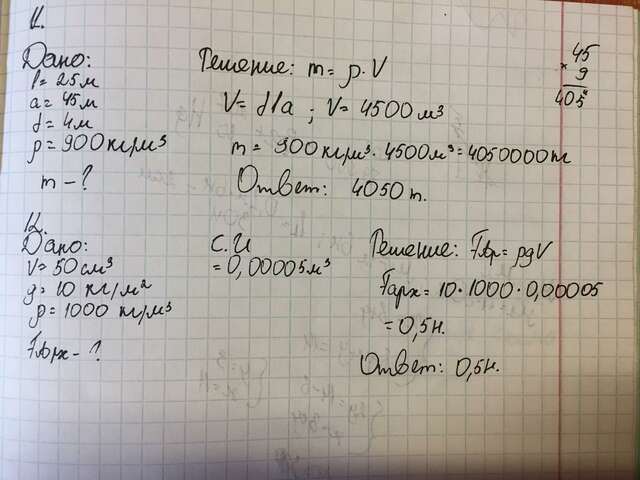 11.
Дано:
l = 25м
a = 45м
d = 4м
ρ = 900 кг/м³
m - ?
Решение: m = ρ · V
V = dla ; V = 4500 м³
m = 900 кг/м³ · 4500м³ = 4050000кг
Ответ: 4050 т.
45
× 9
405
12.
Дано:
V = 50 см³
g = 10 кг/м²
ρ = 1000 кг/м³
Fарх - ?
С.И
= 0,00005м³
Решение: Fар = ρgV
Fарх = 10 · 1000 · 0,00005
= 0,5н.
Ответ: 0,5н.